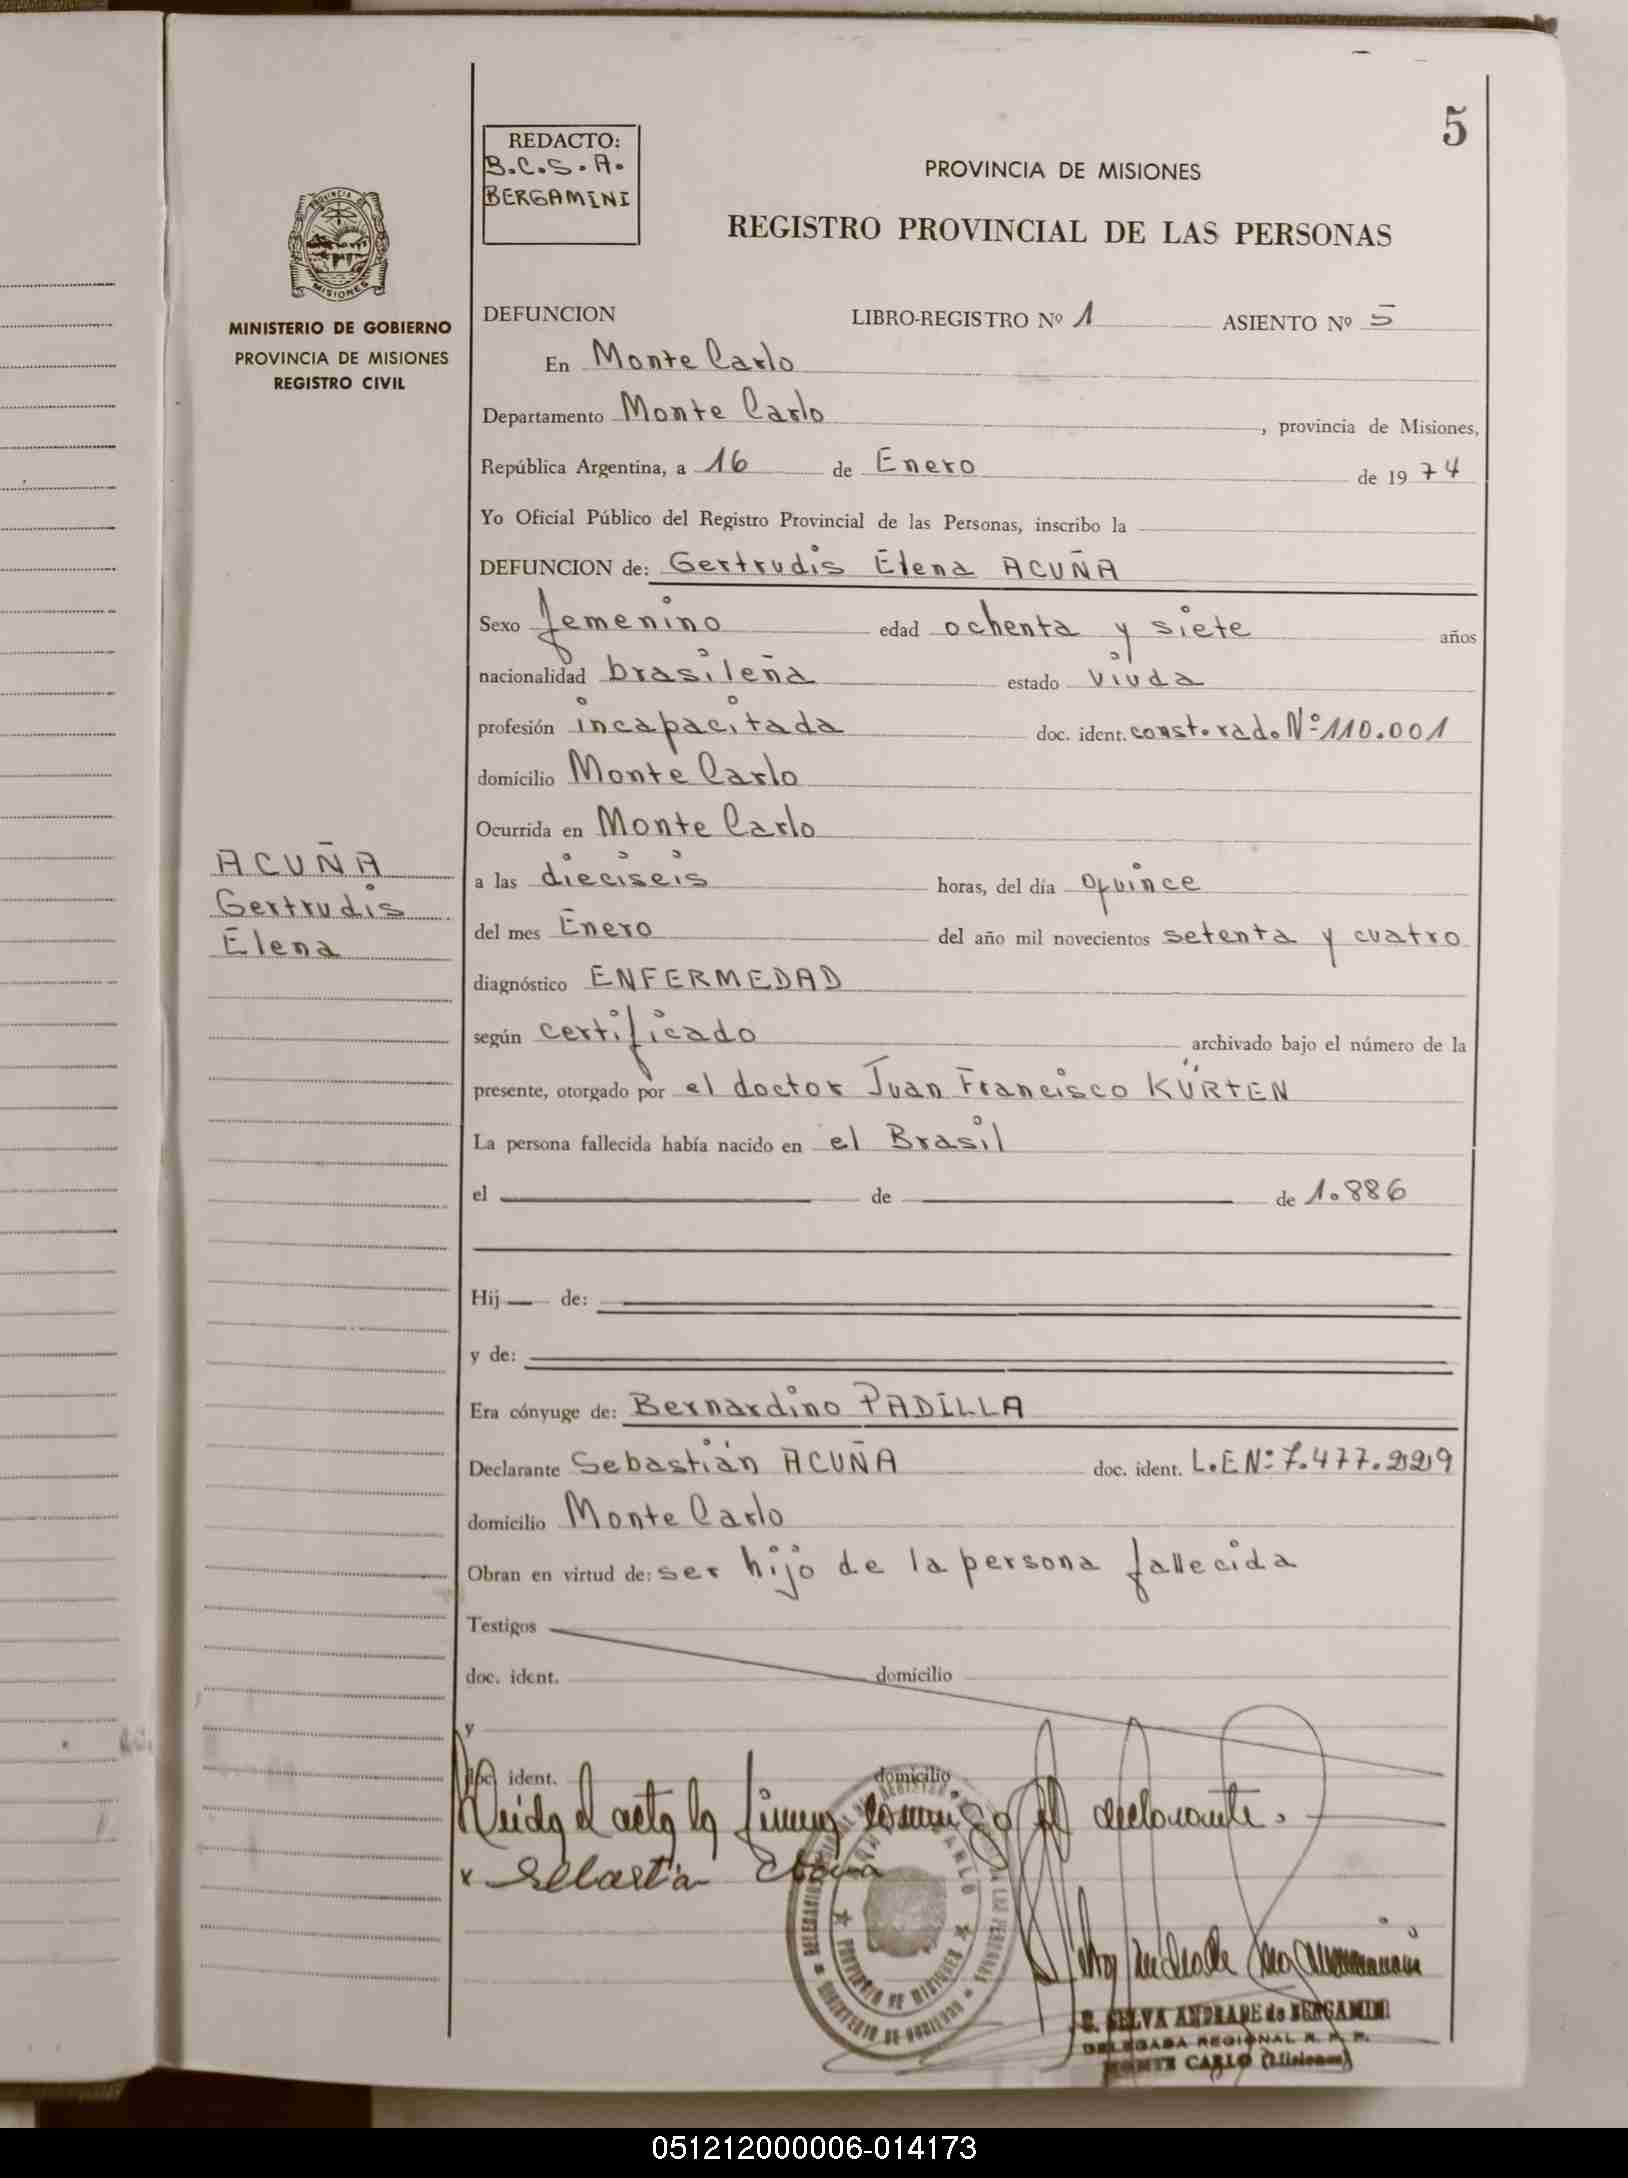 5
REDACTO:
B.C.S.A.
BERGAMINI
PROVINCIA DE MISIONES
REGISTRO PROVINCIAL DE LAS PERSONAS
PROVINCIA DE
MISIONES
MINISTERIO DE GOBIERNO
PROVINCIA DE MISIONES
REGISTRO CIVIL
DEFUNCION LIBRO-REGISTRO Nº 1 ASIENTO Nº 5
En Monte Carlo
Departamento Monte Carlo, provincia de Misiones,
República Argentina, a 16 de Enero de 1974
Yo Oficial Público del Registro Provincial de las Personas, inscribo la
DEFUNCION de: Gertrudis Elena ACUÑA
Sexo femenino edad ochenta y siete años
nacionalidad brasileña estado viuda
profesión incapacitada doc. ident. const. rad. Nº 110.001
domicilio Monte Carlo
Ocurrida en Monte Carlo
ACUÑA
Gertrudis
Elena
a las dieciseis horas, del día quince
del mes Enero del año mil novecientos setenta y cuatro
diagnóstico ENFERMEDAD
según certificado archivado bajo el número de la
presente, otorgado por el doctor Juan Francisco KÜRTEN
La persona fallecida había nacido en el Brasil
el de de 1.886
Hij de:
y de:
Era cónyuge de: Bernardino PADILLA
Declarante Sebastián ACUÑA doc. ident. L.E Nº 7.477.229
domicilio Monte Carlo
Obran en virtud de: ser hijo de la persona fallecida
Testigos
doc. ident. domicilio
y
doc. ident. domicilio
Leida el acta la firma conmigo el declarante.
x Sebastian
PROVINCIA DE MISIONES
MINISTERIO DE GOBIERNO
S. SELVA ANDRADE de BERGAMINI
DELEGADA REGIONAL R. P. P.
MONTE CARLO (Misiones)
051212000006-014173